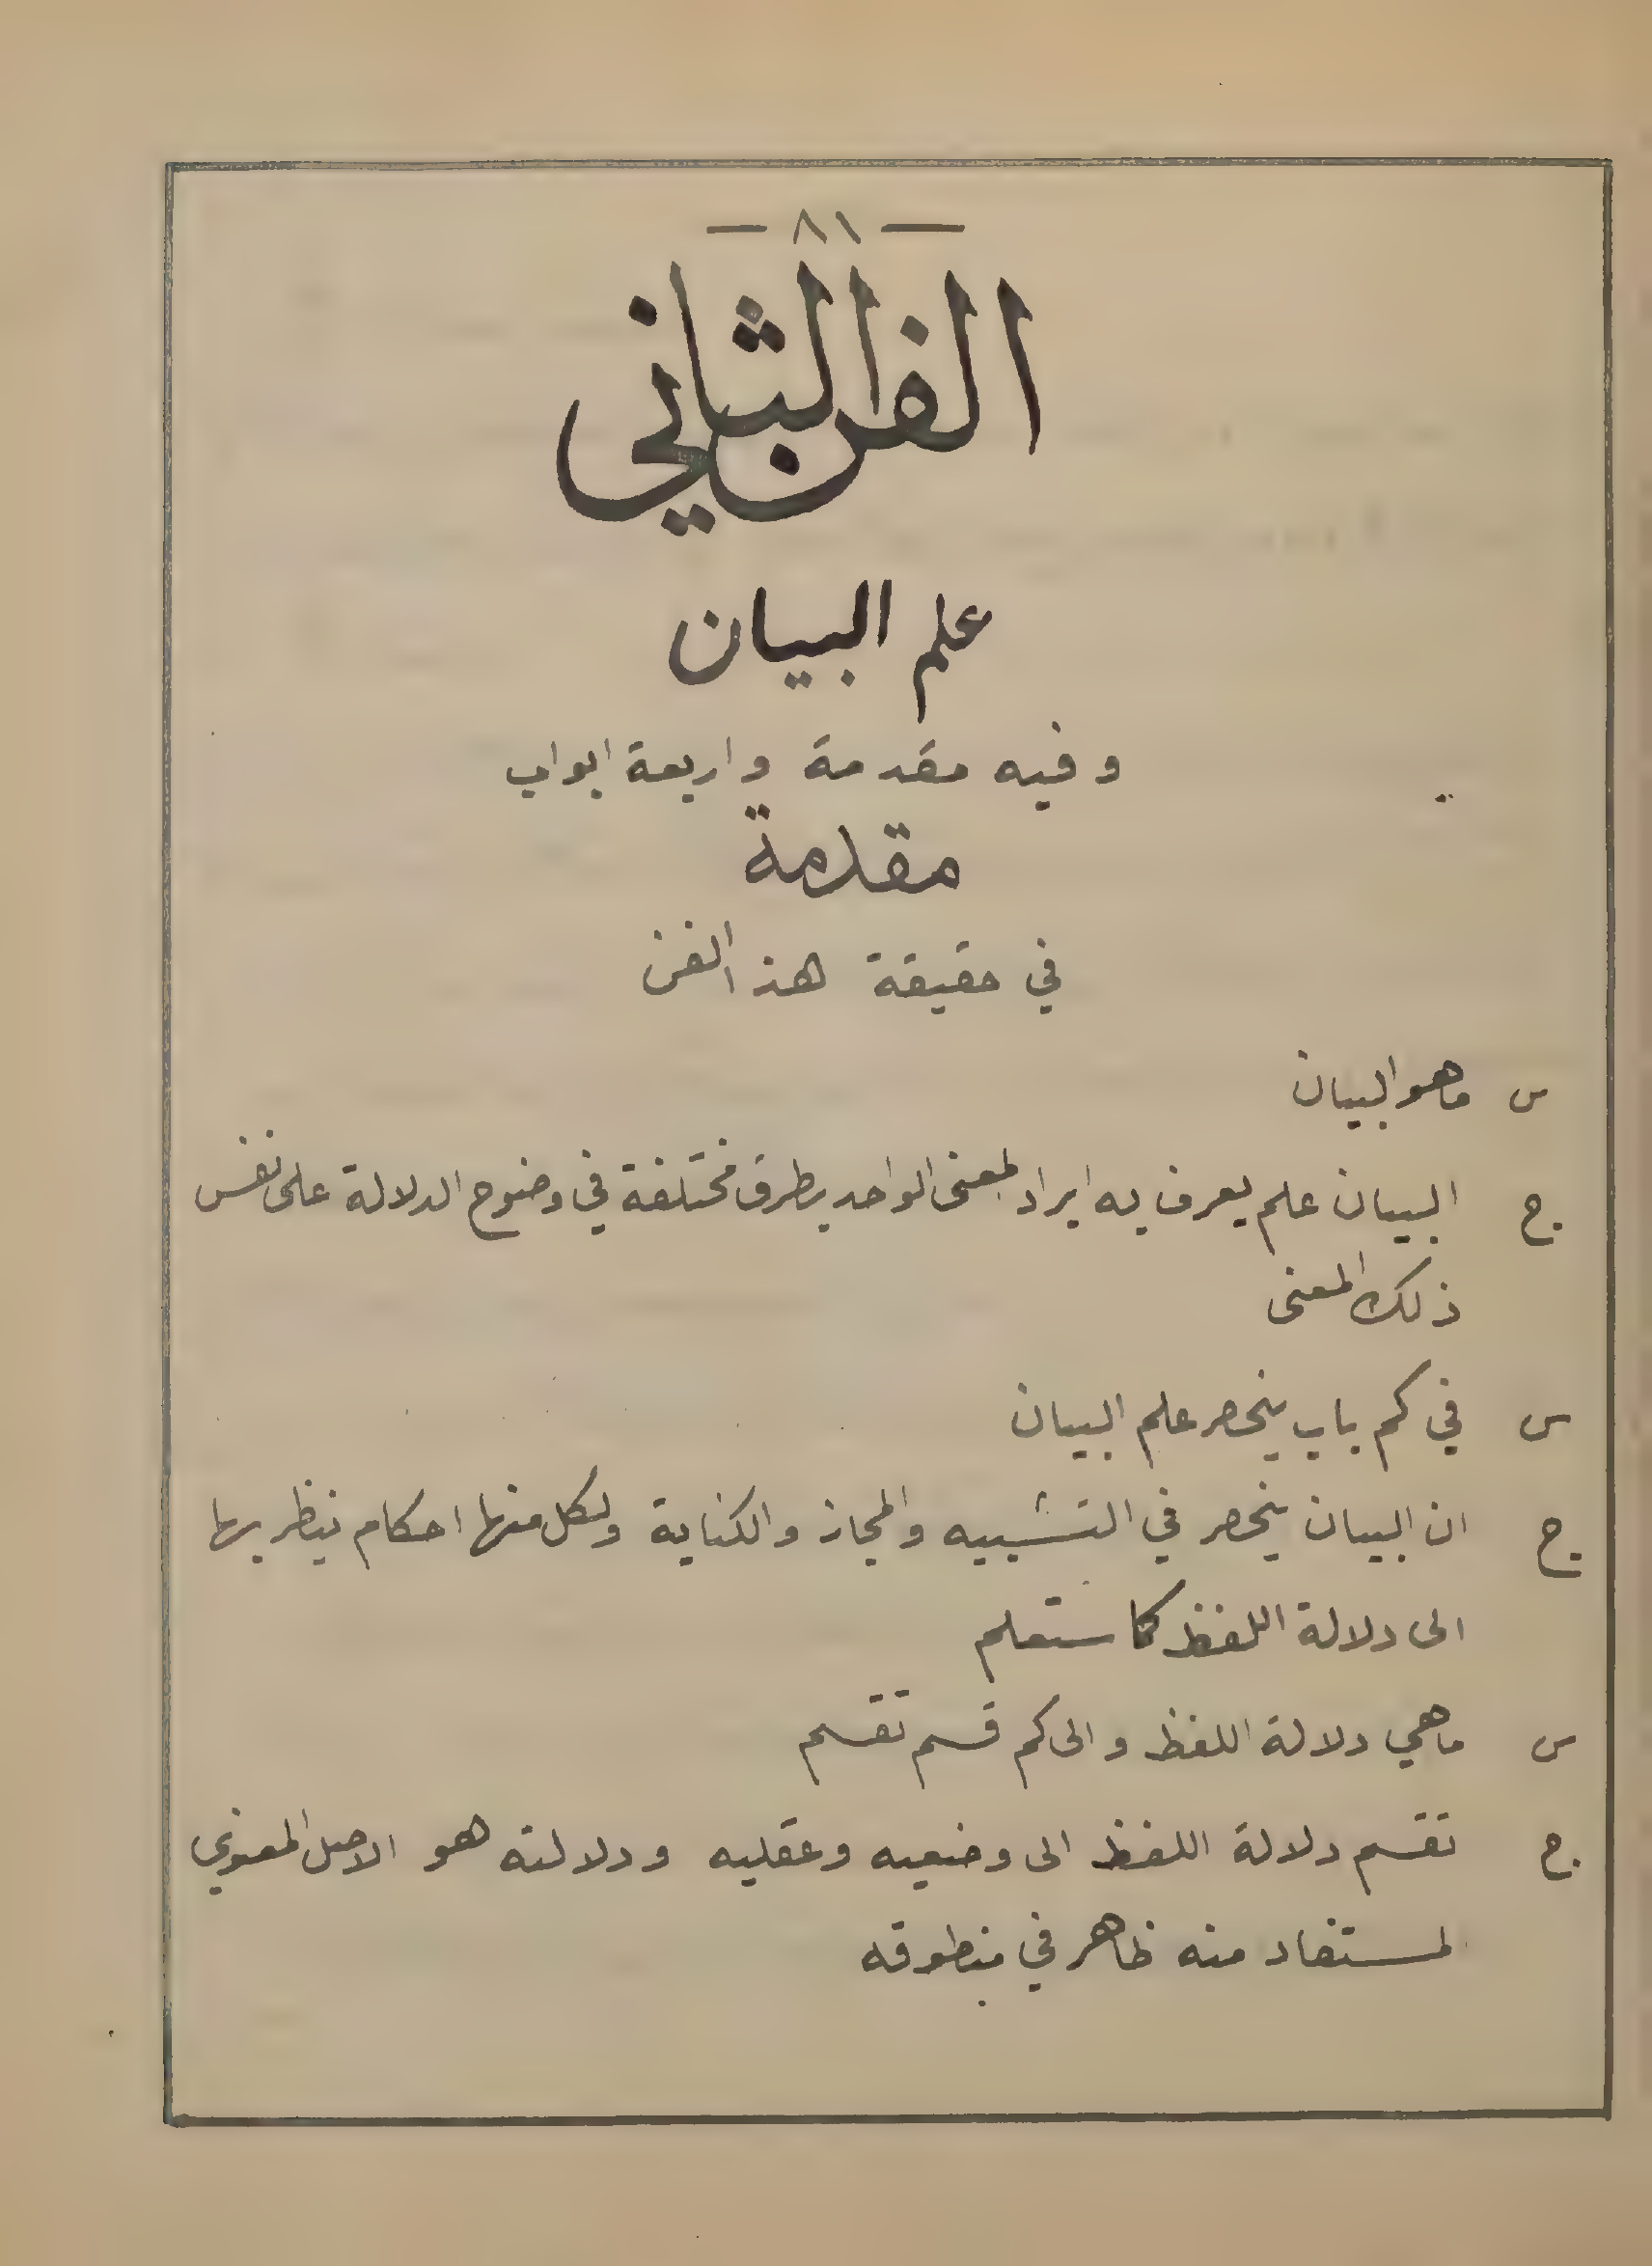 — ٨١ —
الفن الثاني
علم البيان
وفيه مقدمة واربعة ابواب
مقدمة
في حقيقة هذ الفن
س ماهو البيان
ج البيان علم يعرف به ايراد لمعنى الواحد بطرق مختلفة في وضوح الدلالة على نفس
ذلك المعنى
س في كم باب ينحصر علم البيان
ج ان البيان ينحصر في التشبيه والمجاز والكناية ولكل منها احكام ينظر بها
الى دلالة اللفظ كما ستعلم
س ماهي دلالة اللفظ والى كم قسم تقسم
ج تقسم دلالة اللفظ الى وضعيه وعقليه ودلالته هو الاصل المعنوي
لمستفاد منه ظاهر في منطوقه